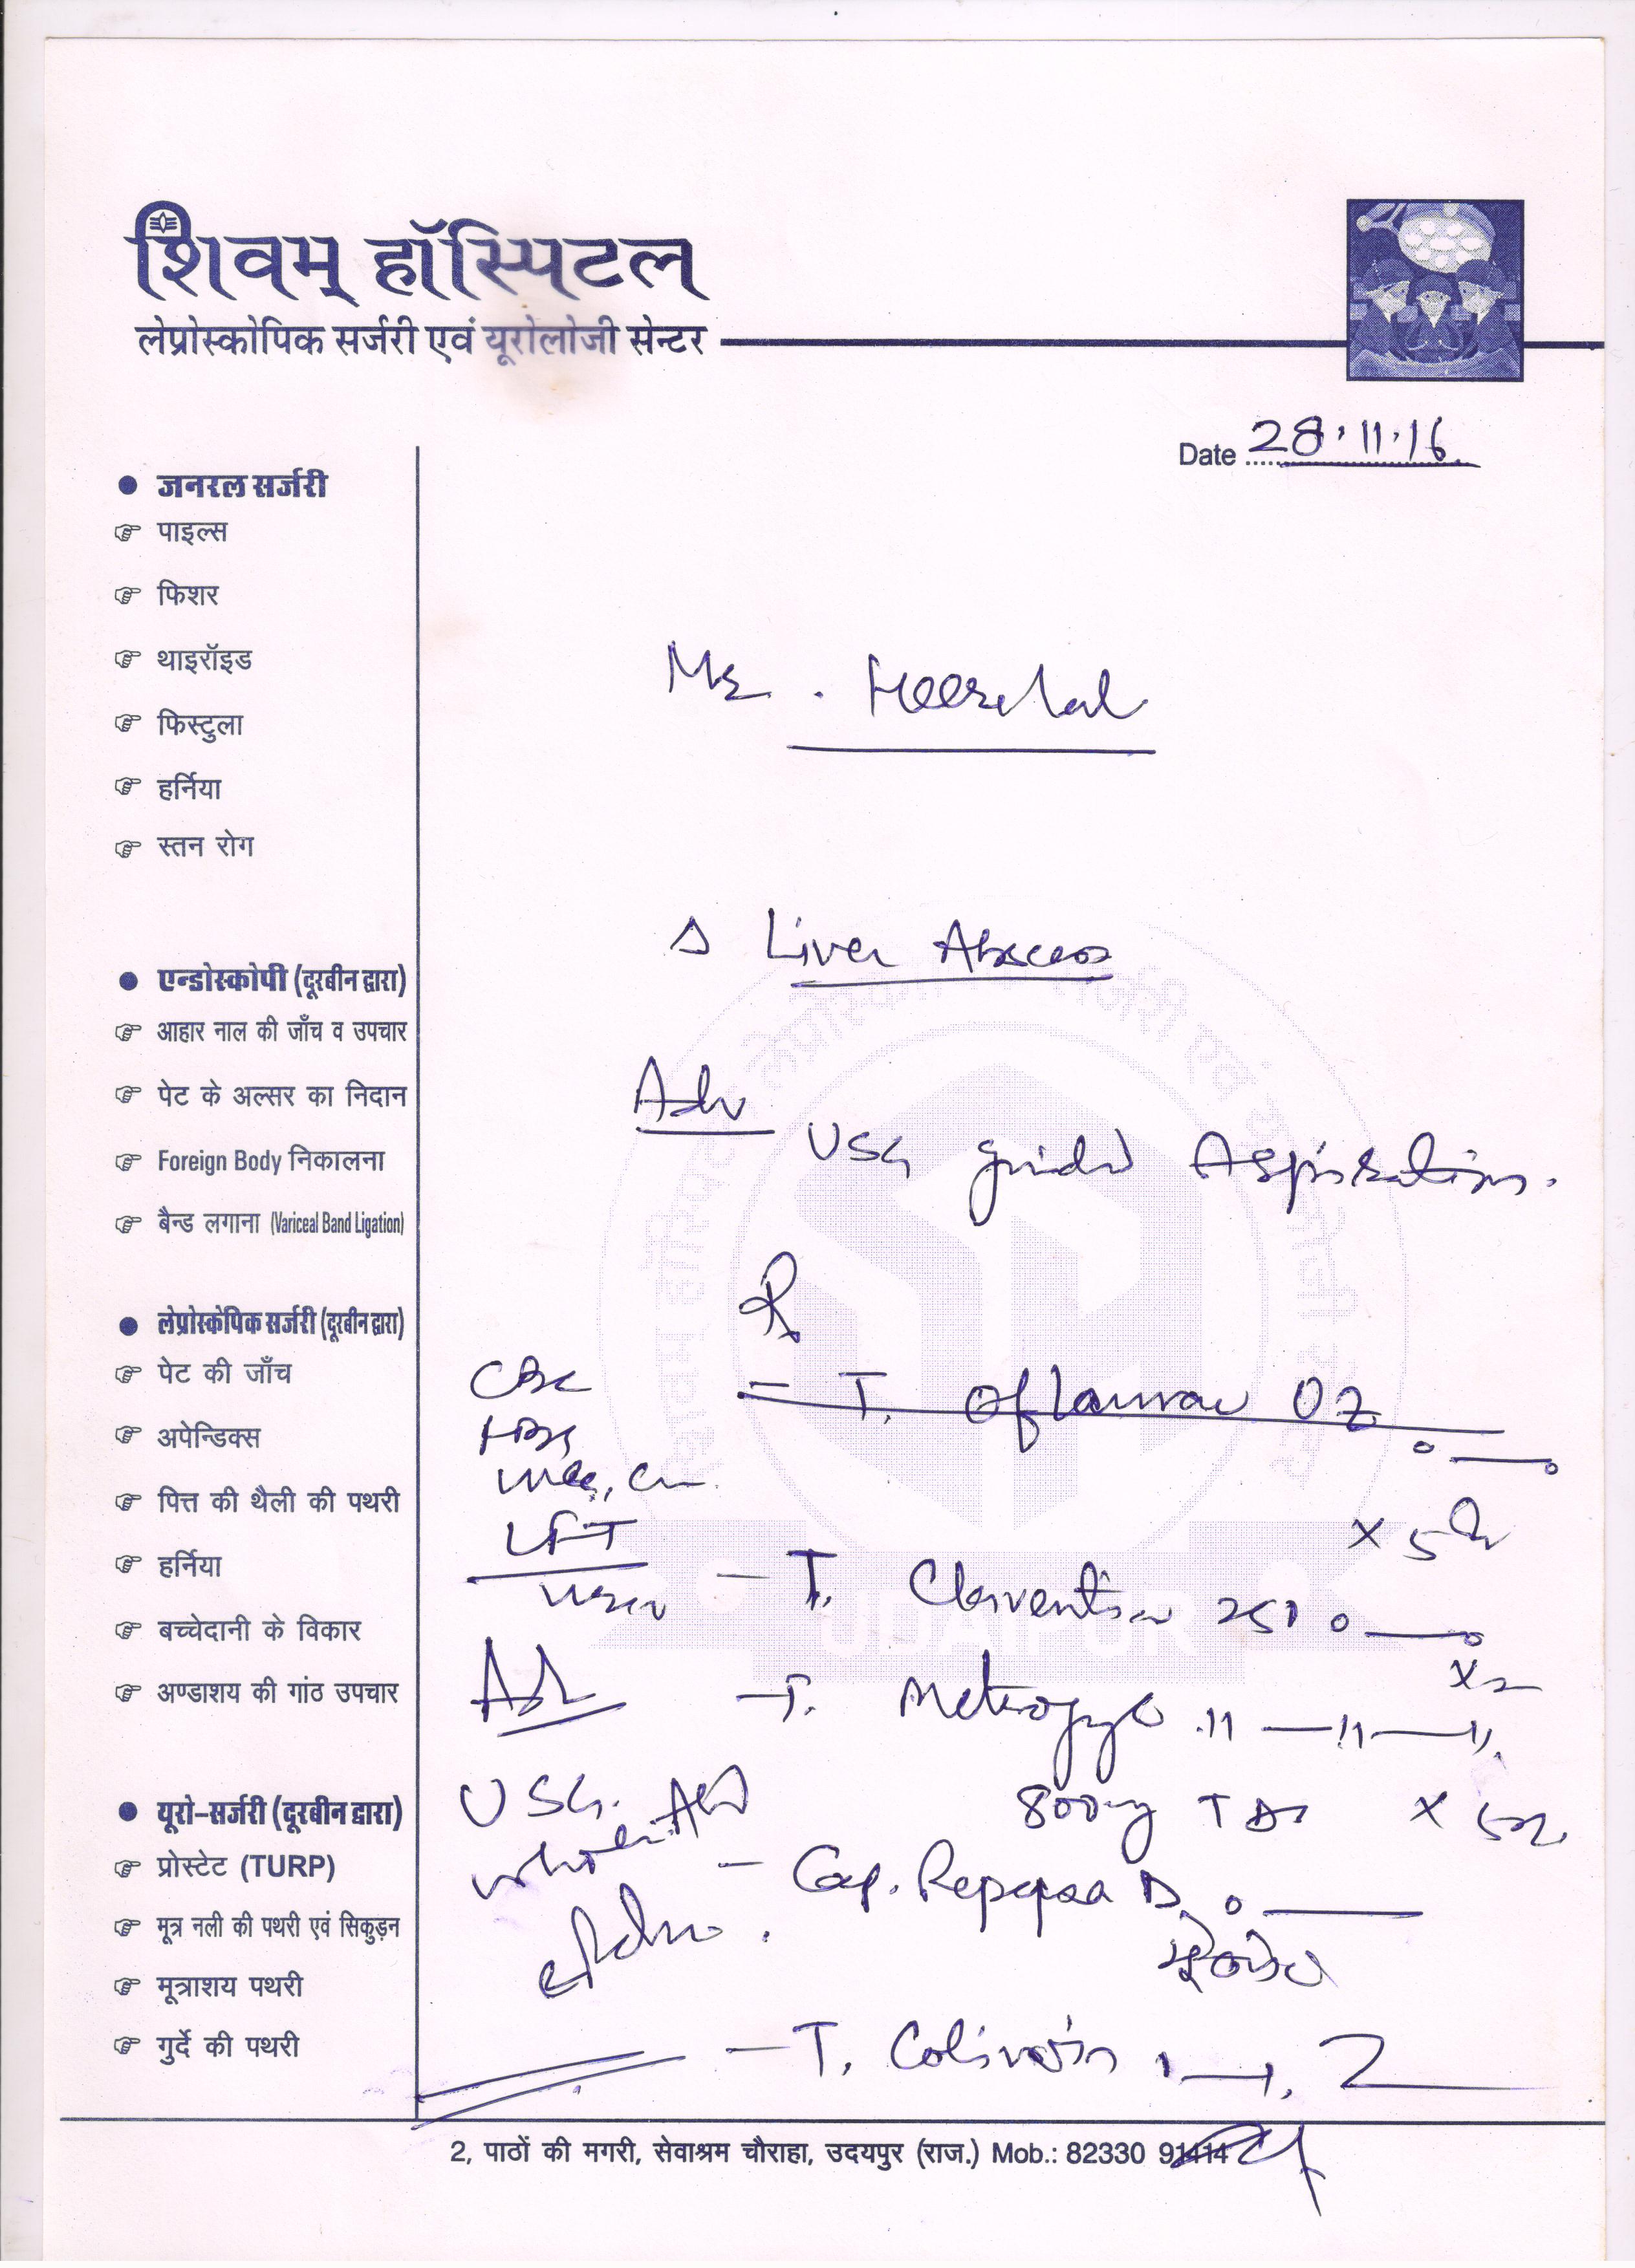 शिवम् हॉस्पिटल
लेप्रोस्कोपिक सर्जरी एवं यूरोलोजी सेन्टर
Date 28.11.16
जनरल सर्जरी
पाइल्स
फिशर
थाइरॉइड
फिस्टुला
हर्निया
स्तन रोग
एन्डोस्कोपी (दूरबीन द्वारा)
आहार नाल की जाँच व उपचार
पेट के अल्सर का निदान
Foreign Body निकालना
बैन्ड लगाना (Variceal Band Ligation)
लेप्रोस्कोपिक सर्जरी (दूरबीन द्वारा)
पेट की जाँच
अपेन्डिक्स
पित्त की थैली की पथरी
हर्निया
बच्चेदानी के विकार
अण्डाशय की गांठ उपचार
यूरो-सर्जरी (दूरबीन द्वारा)
प्रोस्टेट (TURP)
मूत्र नली की पथरी एवं सिकुड़न
मूत्राशय पथरी
गुर्दे की पथरी
Mr. Heeralal
Δ Liver Abscess
Adv
USG guided Aspiration.
R
CBC
LFT
T. OZ
x 5
T. 
T. Metrogyl
800mg TDS x 5
USG
whole Abd
Cap. D
T.
UDAIPUR
2, पाठों की मगरी, सेवाश्रम चौराहा, उदयपुर (राज.) Mob.: 82330 91414